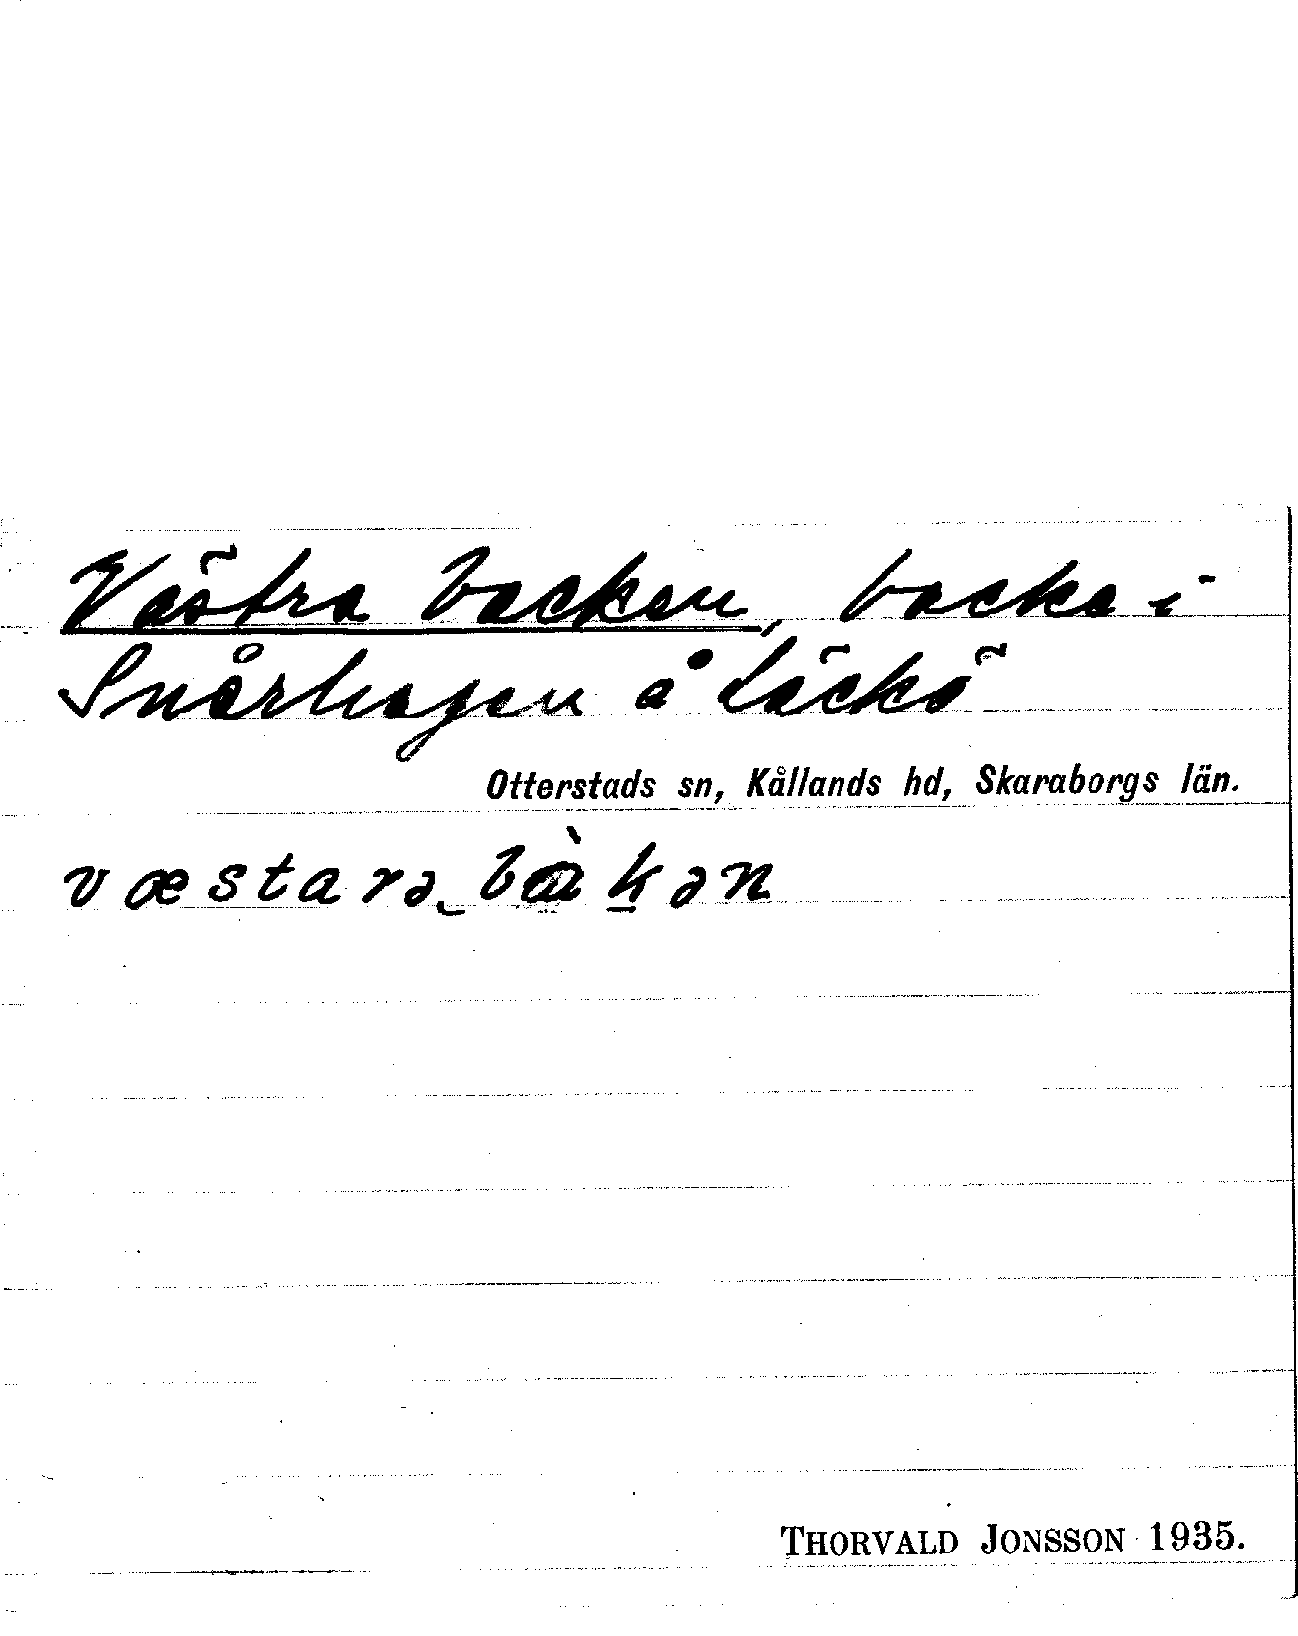 Västra backen, backe i
Snårhagen å Läckö
Otterstads sn, Kållands hd, Skaraborgs län.
væstara_bàkən
THORVALD JONSSON 1935.